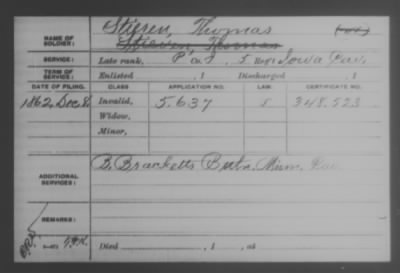 Stieren, Thomas
NAME OF SOLDIER: Stieven, Thomas
SERVICE: Late rank, Pvt 5 Reg't Iowa Cav.
TERM OF SERVICE: Enlisted , 1 Discharged , 1
DATE OF FILING. CLASS APPLICATION NO. LAW. CERTIFICATE NO.
1862, Dec 8 Invalid, 5.637 348.523
Widow,
Minor,
ADDITIONAL SERVICES: B. Bracketts Battn. Minn. Cav.
REMARKS:
Died , 1 , at